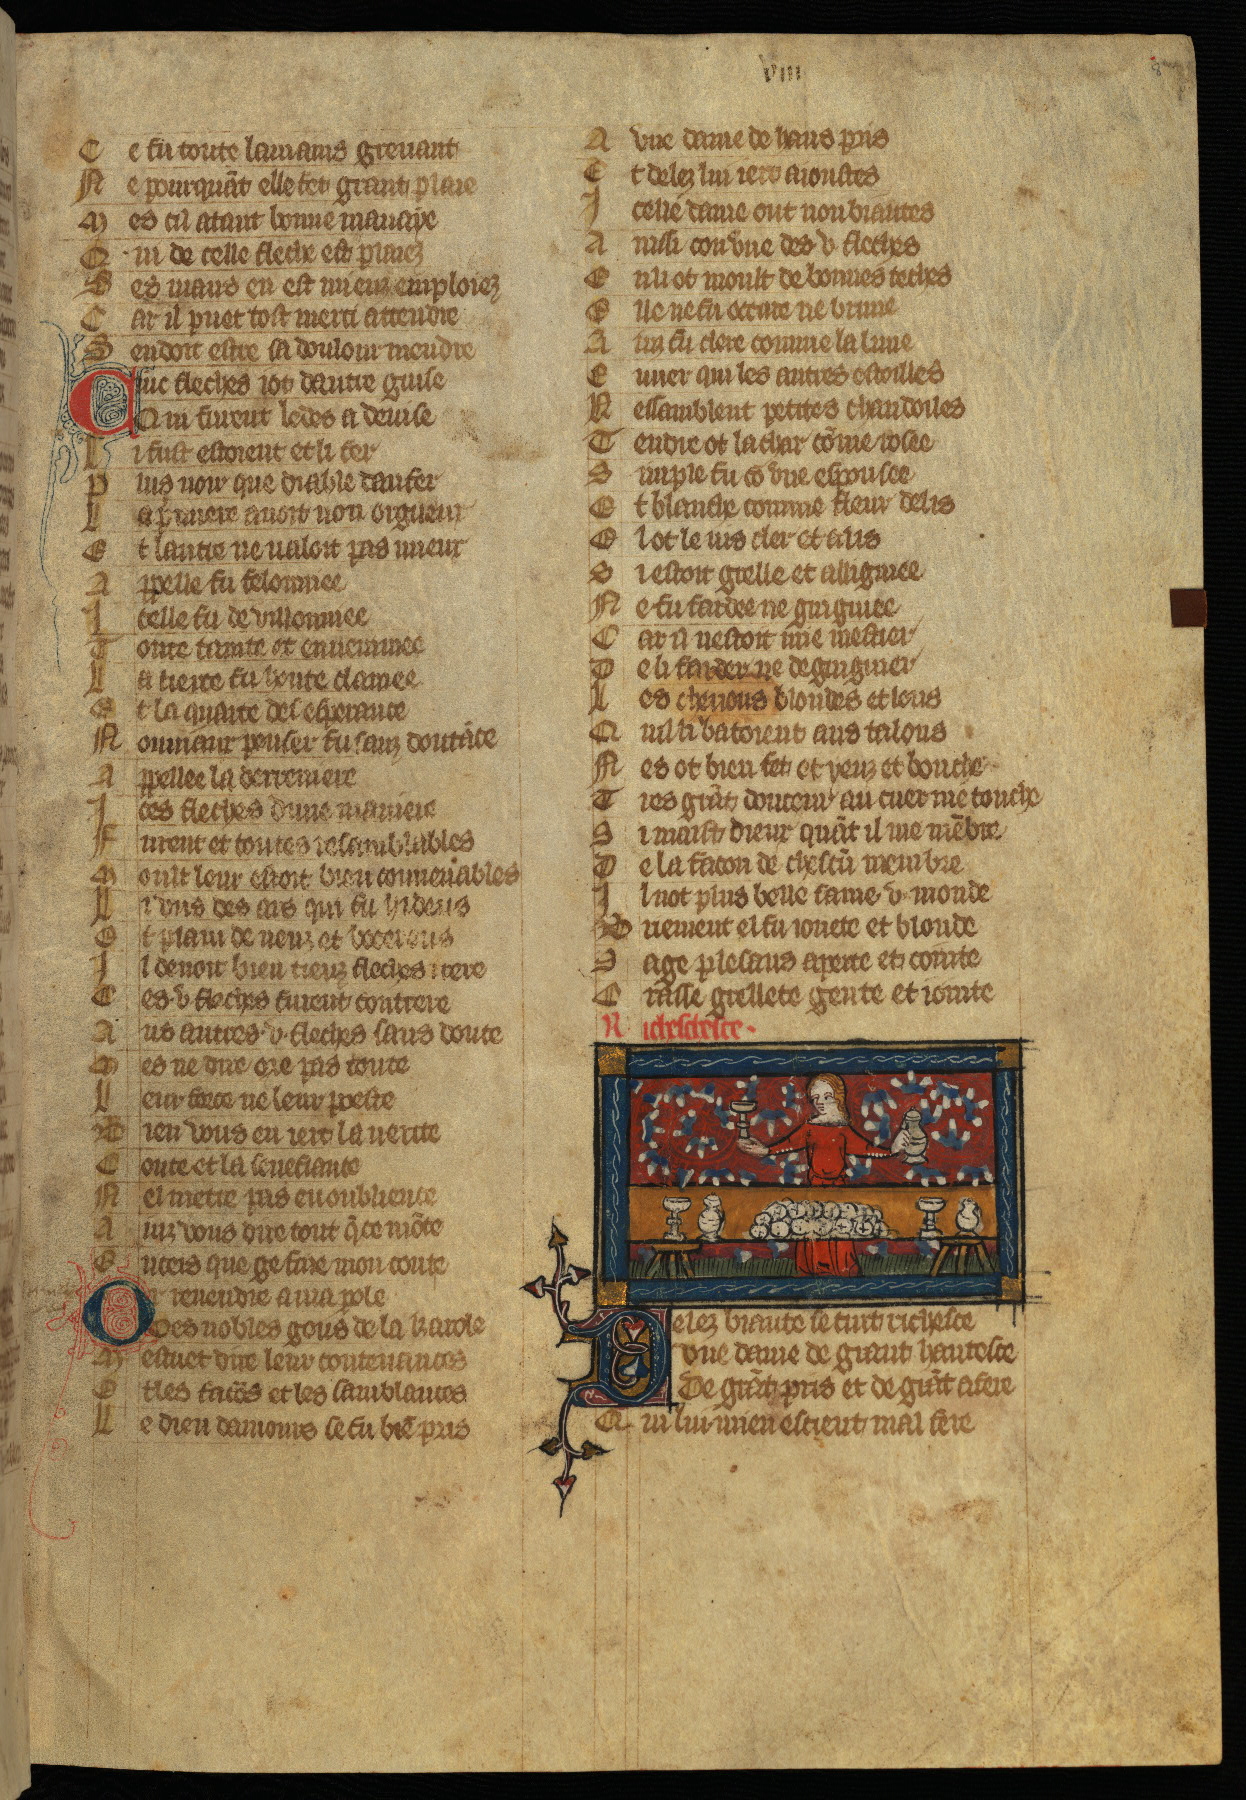 viii
8
C e fu toute la mains greuant
N e pourquāt elle fet grant plaie
M es cil atant bonne manaye
Q ui de celle fleche est plaiez
S es maus en est mieuz emploiez
C ar il puet tost merci attendre
S en doit estre sa doulour mendre
Cinc fleches iot dautre guise
Q ui furent ledes a deuise
L i fust estoient et li fer
P lus noir que diable danfer
L a p̄miere auoit non orgueur
E t lautre ne ualoit pas mieur
A ppelle fu felonniee
I celle fu de villonniee
T oute tainte et enuenimee
L a tierce fu honte clamee
E t la quarte desesperance
N ouuiaur penser fu sanz doutāce
A ppellee la derreniere
I ces fleches dune maniere
F urent et toutes resamblables
M oult leur estoit bien conuenables
L i vns des ars qui fu hideus
E t plain de neuz et bocereus
I l deuoit bien tieuz fleches trere
C es v fleches furent contrere
A us autres v fleches sans doute
M es ne dire ore pas toute
L eur force ne leur poeste
B ien vous en iert la uerite
C ontee et la senefiance
N el metre pas en oublience
A inz vous dire tout q̄ ce mōte
E inceis que ge fine mon conte
Or reuendre a ma pole
Des nobles gens de la karole
M estuet dire leur contenances
E t les facōs et les samblances
L e dieu damours se fu biē pris
A vne dame de haus pris
E t delez lui iert aioustes
I celle dame out non biautes
A insi con vne des v fleches
E n li ot moult de bonnes teches
E lle ne fu occure ne brune
A inz fu clere comme la lune
E nuer qui les autres estoilles
R essamblent petites chandoiles
T endre ot la char cōme rosee
S imple fu cō vne espousee
E t blanche comme fleur de lis
E l ot le uis cler et alis
S i estoit grelle et alligniee
N e fu fardee ne guigniee
C ar il nestoit mie mestier
D e li farder ne de guignier
L es cheuous blondes et lons
Q uil li batoient aus talons
N es ot bien fet et yeuz et bouche
T res grāt douceur au cuer me touche
S i maist dieur quāt il me mēbre
D e la facon de chescū membre
I l not plus belle fame v monde
B riement el fu ionete et blonde
S age plesans aperte et cointe
C rasse grellete gente et iointe
R ichesche ste
Delez biaute se tint richesce
Vne dame de grant hautesce
De grāt pris et de grāt afere
Q ui lui mien escient mal fere